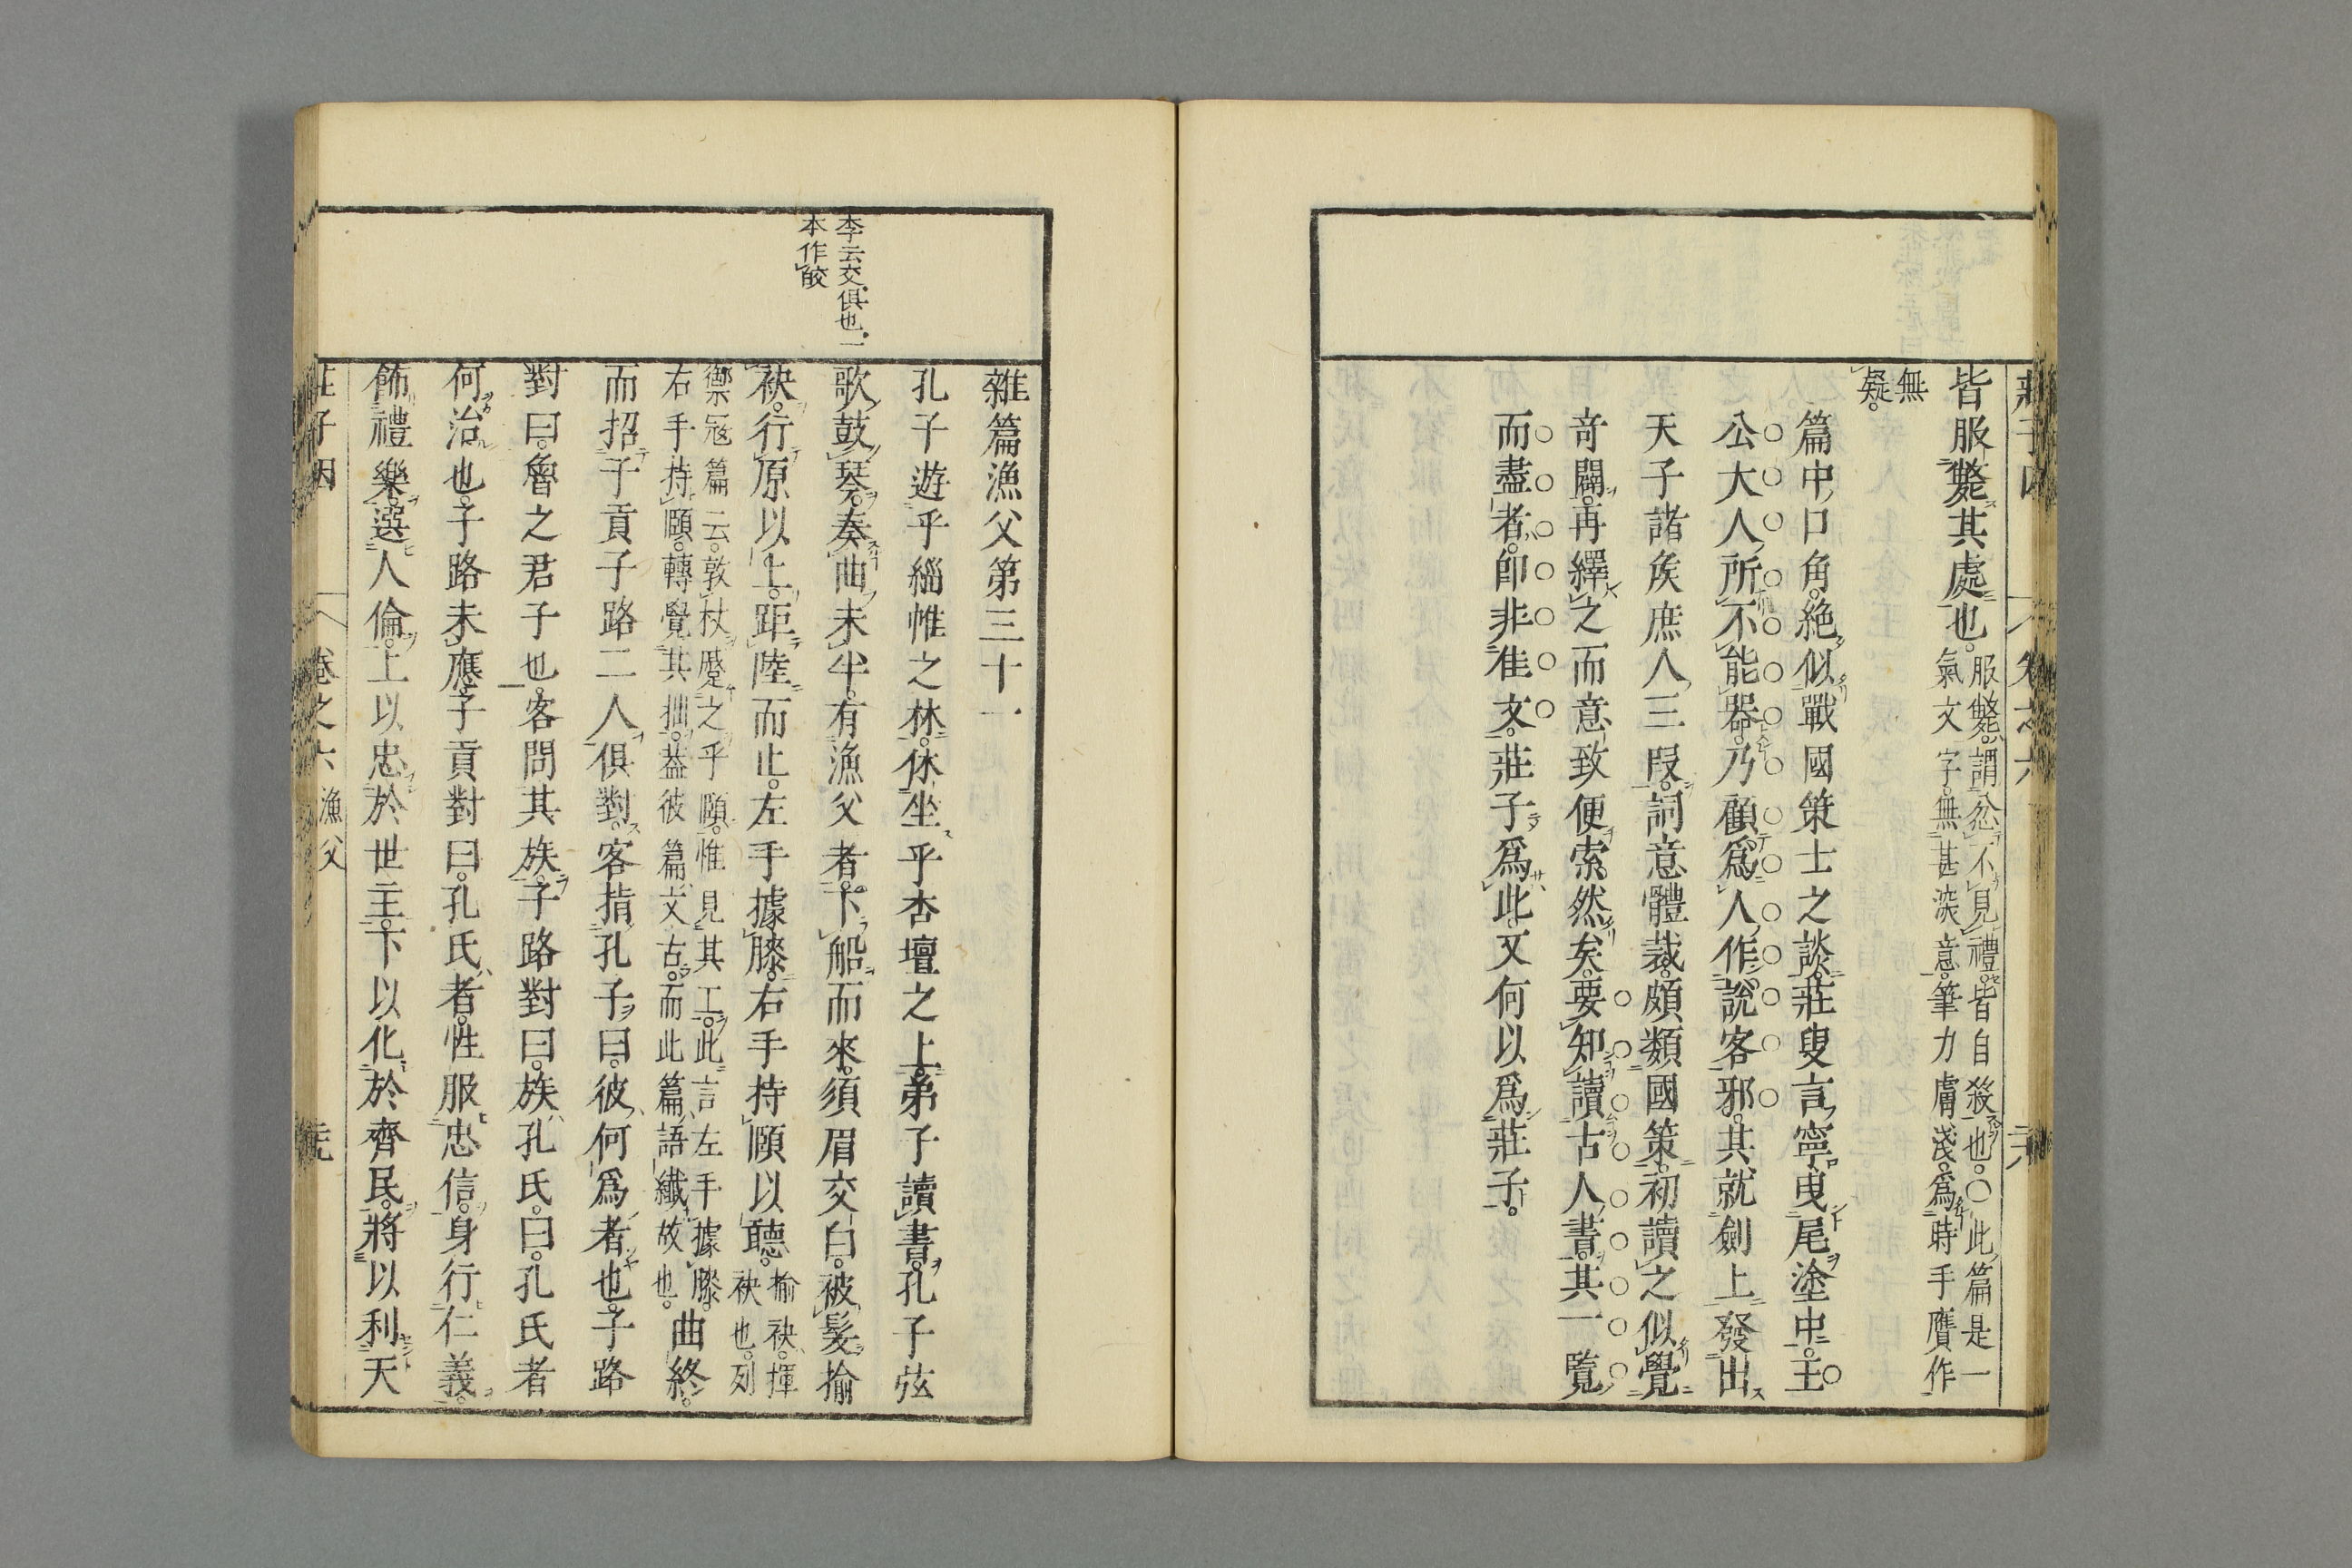 皆服斃其處也。服斃。謂忿不見禮。皆自殺也。○此篇是一
氣文字。無甚深意。筆力膚淺。爲時手贋作
無
疑。
篇中口角。絶似戰國策士之談。莊叟言寧曳尾塗中。王
公大人所不能器。乃顧爲人作說客邪。其就劍上發出
天子諸矦庶人三段。詞意體裁。頗類國策。初讀之似覺
奇闢。再繹之而意致便索然矣。要知讀古人書。其一覽
而盡者。卽非佳文。莊子爲此文何以爲莊子。
李云交俱也一
本作皎
雜篇漁父第三十一
孔子遊乎緇帷之林。休坐乎杏壇之上。弟子讀書。孔子弦
歌鼓琴。奏曲未半。有漁父者。下船而來。須眉交白。被髮揄
袂。行原以上。距陸而止。左手據膝。右手持頤以聽。揄袂。揮
袂也。列
禦冦篇云。敦杖蹙之乎頤。惟見其工。此言左手據膝。
右手持頤。轉覺其拙。葢彼篇文古。而此篇語纖故也。曲終。
而招子貢子路二人俱對。客指孔子曰。彼何爲者也。子路
對曰。魯之君子也。客問其族。子路對曰。族孔氏。曰。孔氏者
何治也。子路未應。子貢對曰。孔氏者。性服忠信。身行仁義。
飾禮樂。選人倫。上以忠於世主。下以化於齊民。將以利天
莊子因
卷之六
漁父